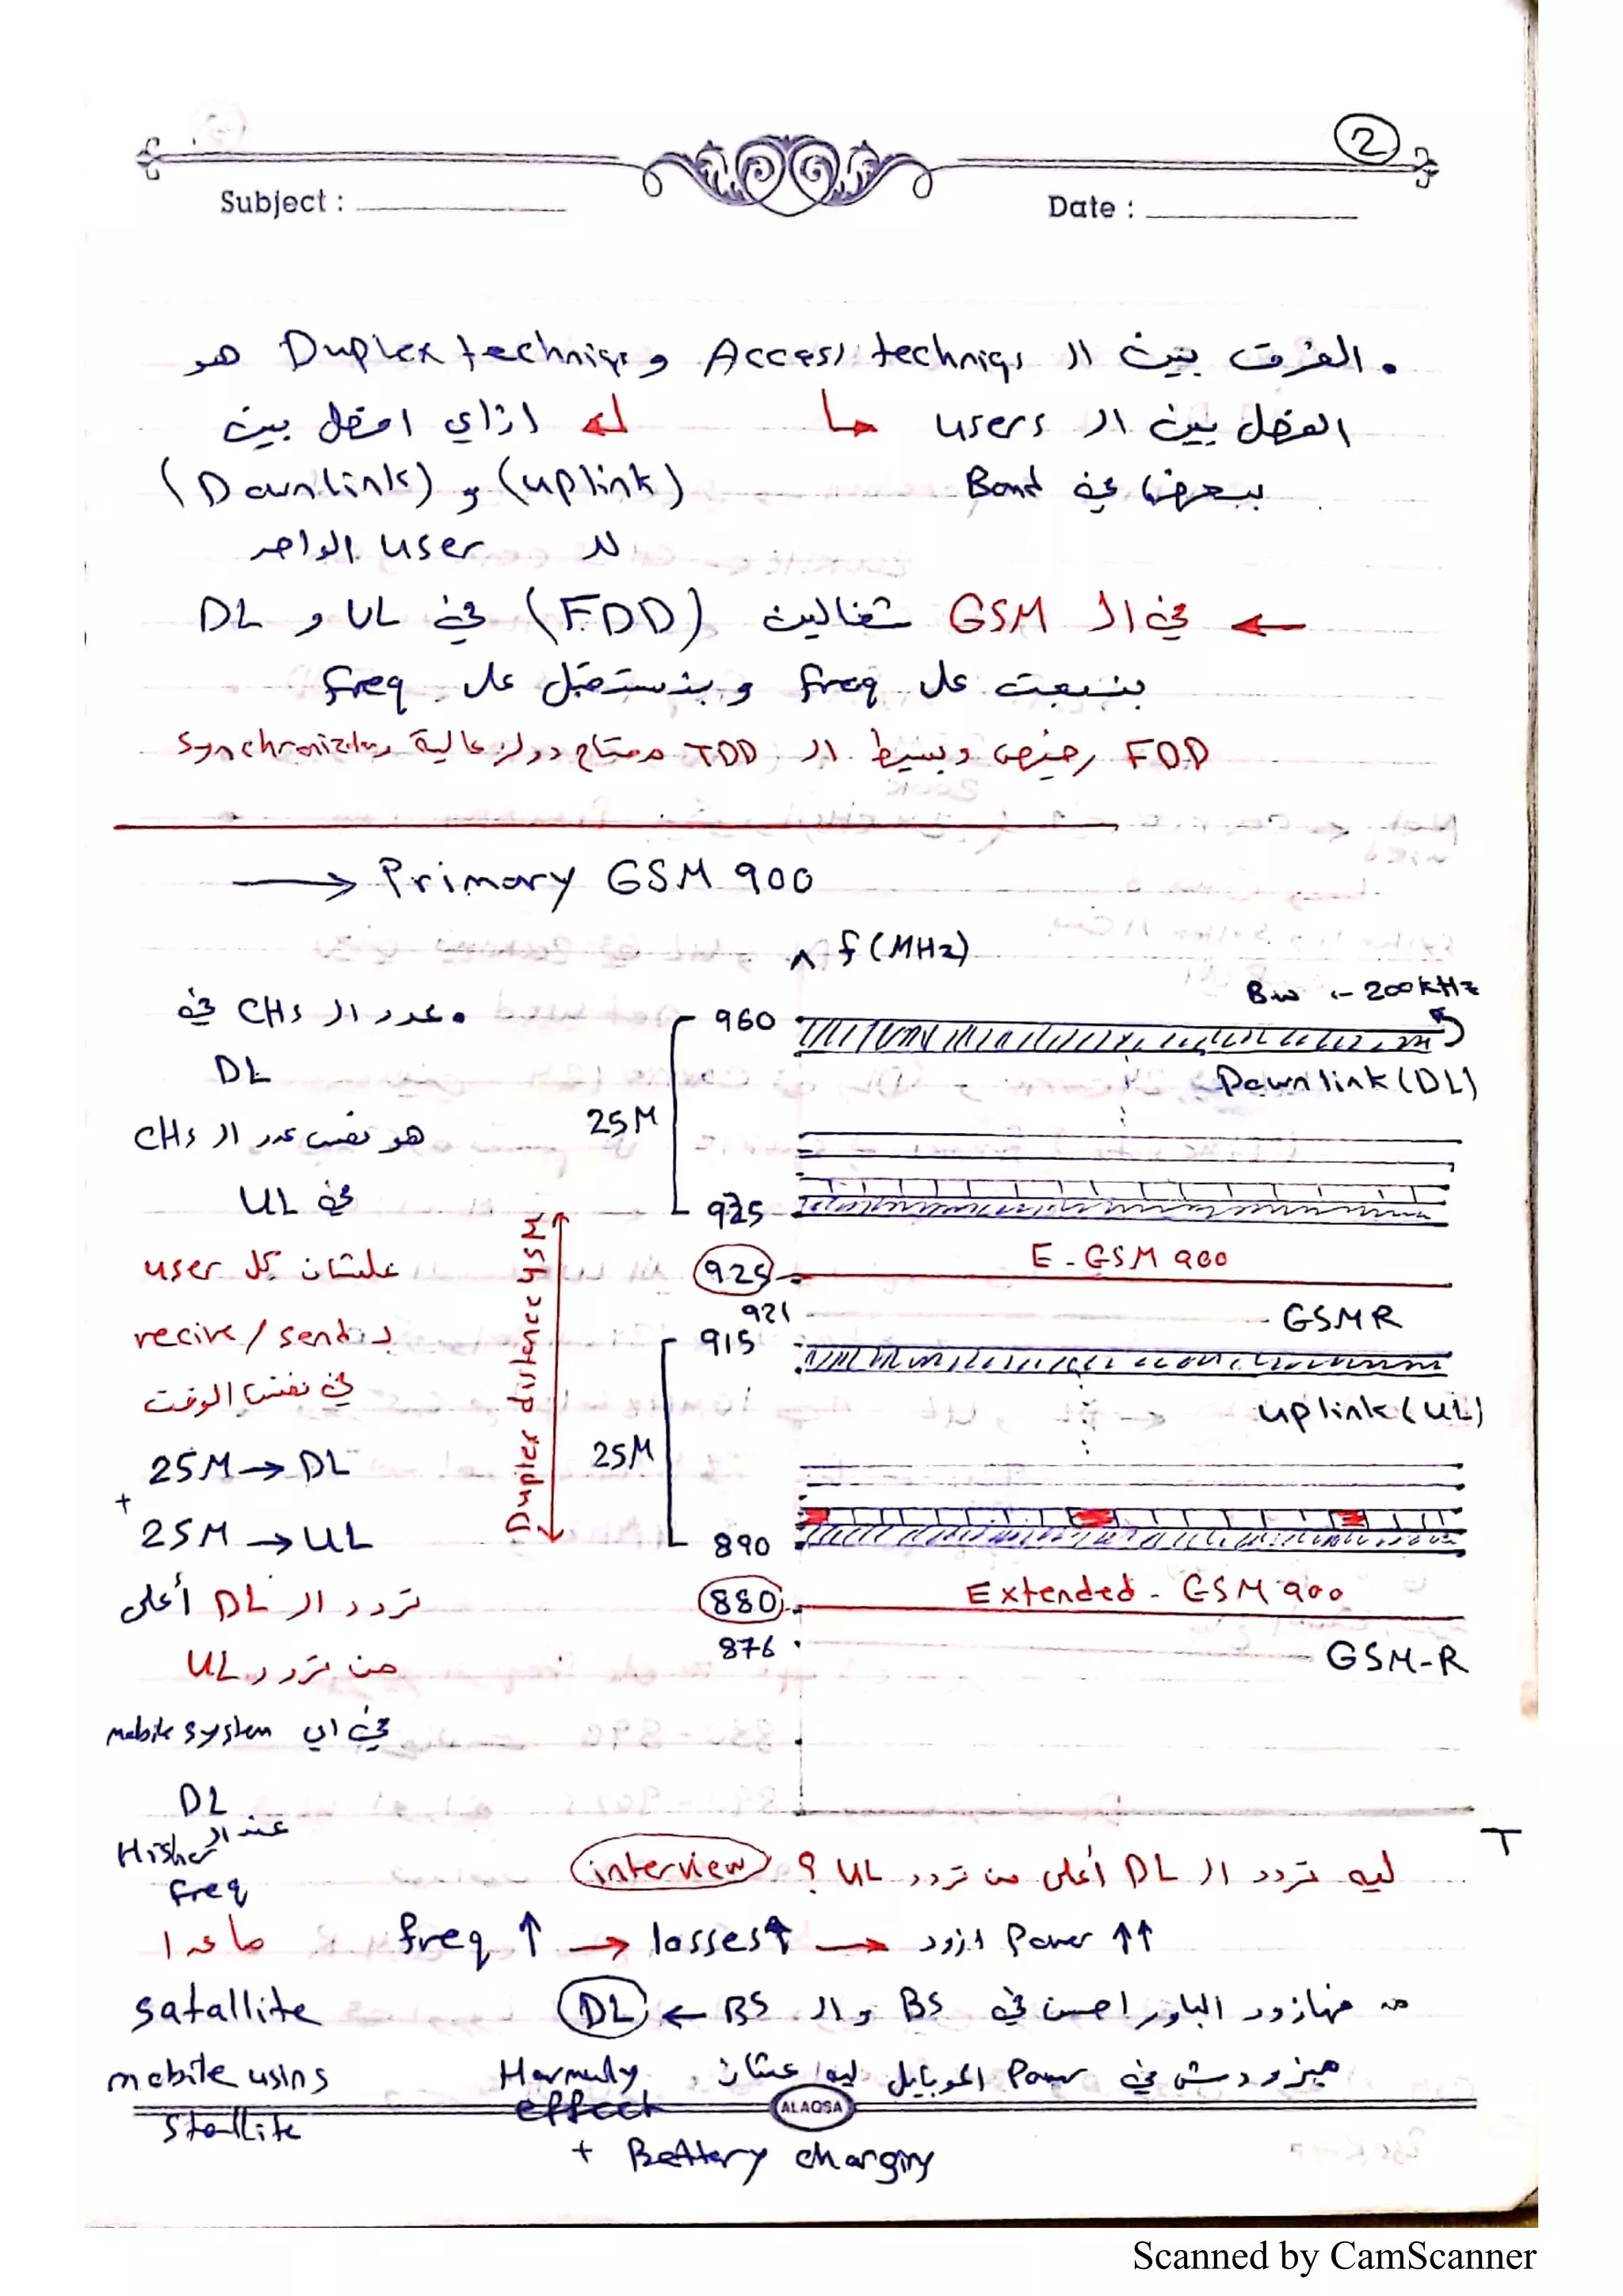 2
Subject :
Date :
• الفرق بين ال Access techniqs و Duplex techniqs هو
الفصل بين ال users
ازاي افصل بين
ببعضها في Band
(uplink) و (Downlink)
لل user الواحد
← في ال GSM شغالين (FDD) في UL و DL
بنبعت على freq وبنستقبل على freq
FDD رخيص وبسيط ال TDD محتاج دوائر عالية synchronization
→ Primary GSM 900
f (MHz)
BW :- 200 KHz
• عدد ال CHs في
DL
هو نفس عدد ال CHs
في UL
علشان كل user
recive / send
في نفس الوقت
25M → DL
+
25M → UL
تردد ال DL أعلى
من تردد UL
في اي mobile system
DL
عند ال
Higher
freq
ما عدا
satallite
mobile using
Stallite
960
Downlink (DL)
25M
935
Duplex distance 45M
925
E - GSM 900
921
GSMR
915
uplink (UL)
25M
890
880
Extended - GSM 900
876
GSM-R
T
ليه تردد ال DL أعلى من تردد UL ؟ interview
freq ↑ → losses ↑ → ازود Power ↑↑
فهازود الباور احسن في BS وال BS ← DL
مبزودش في Power الموبايل ليه عشان Harmuly
effect
+ Battery charging
ALAQSA
Scanned by CamScanner